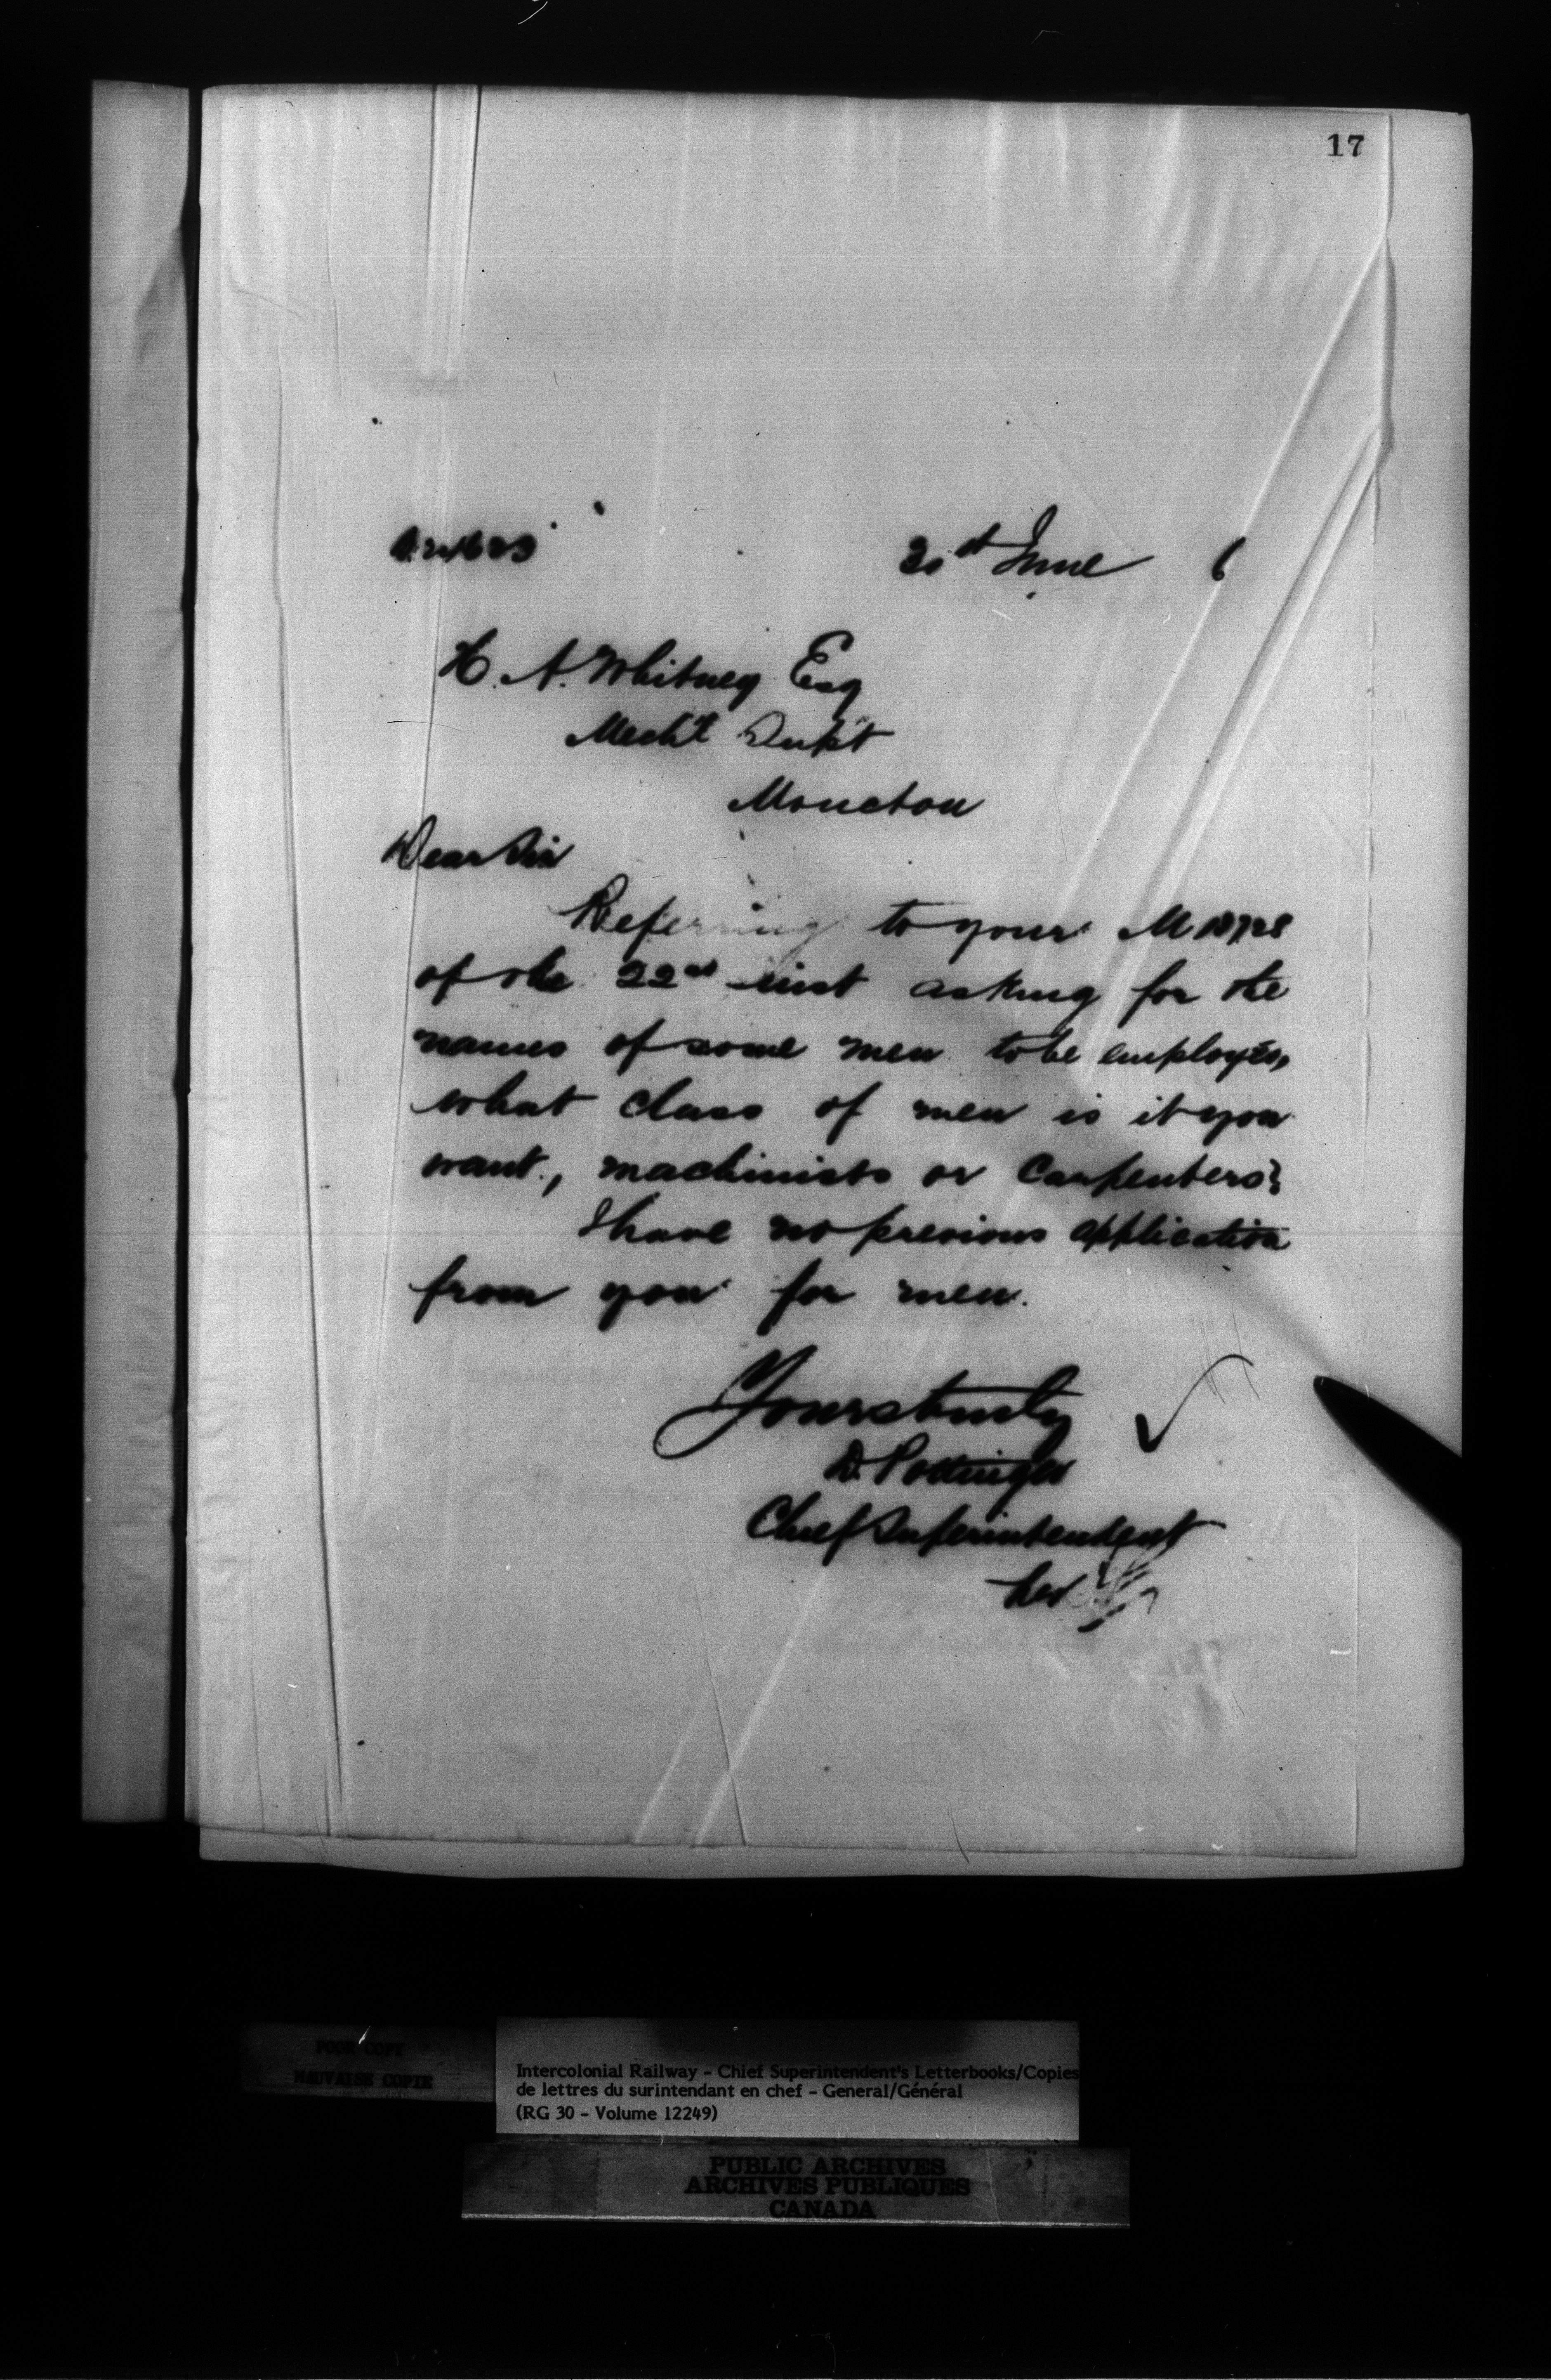 17
June 6
H. A. Whitney Esq
Mechl Supt
Moncton
Dear Sir
Referring to your M
of the 22nd inst asking for the
names of some men to be employed,
what class of men is it you
want, machinists or Carpenters?
I have no previous application
from you for men.
Yours truly
D. Pottinger
Chief Superintendent
POOR COPY
MAUVAISE COPIE
Intercolonial Railway - Chief Superintendent's Letterbooks/Copies
de lettres du surintendant en chef - General/Général
(RG 30 - Volume 12249)
PUBLIC ARCHIVES
ARCHIVES PUBLIQUES
CANADA